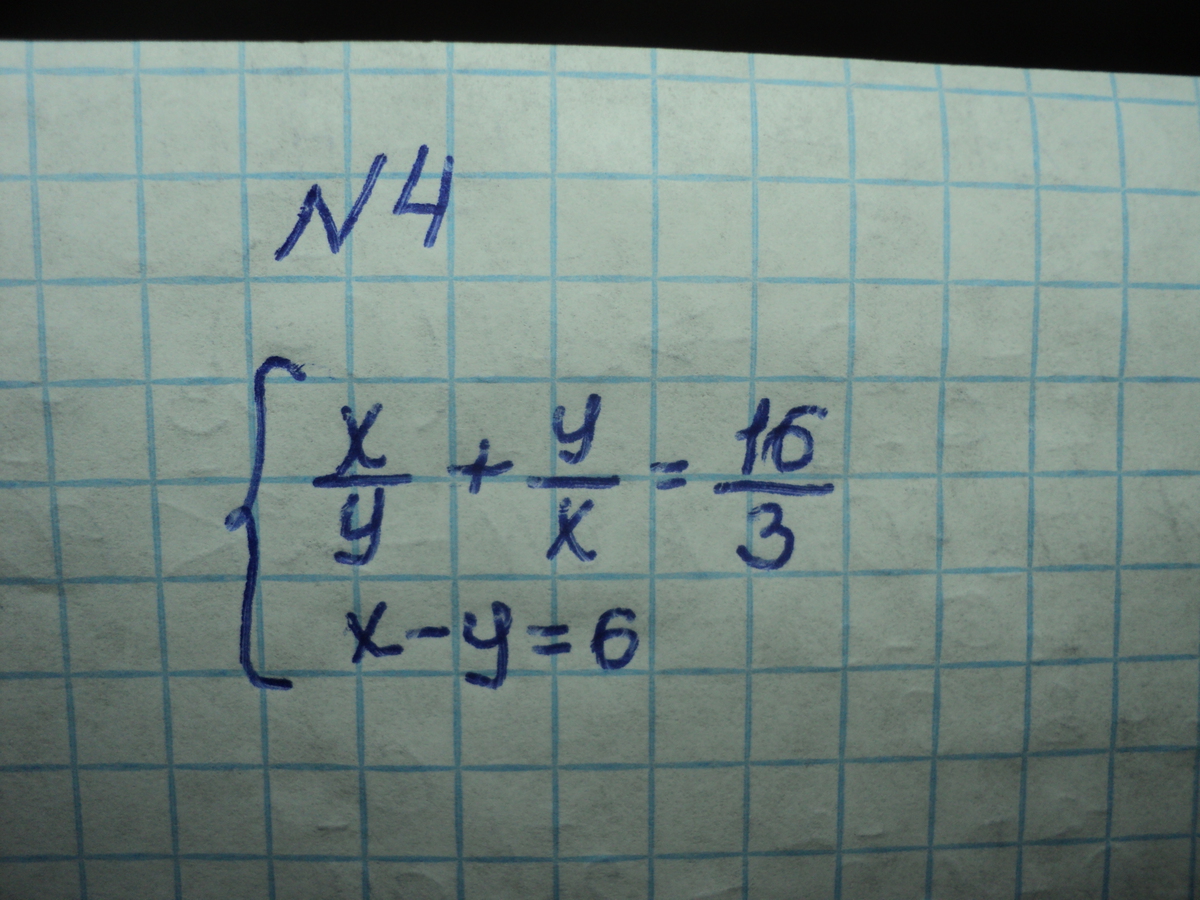 N 4
x/y + y/x = 16/3
x - y = 6